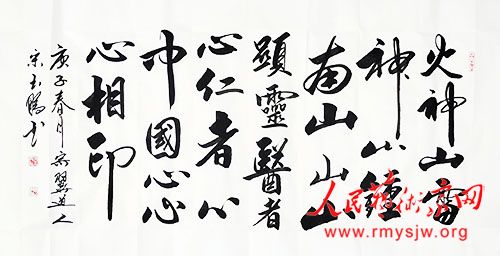 火神山雷
神山鍾
南山山山
顯靈醫者
心仁者心
中國心心
心相印
庚子春月翼道人
宋玉书
人民藝術家网
www.rmysjw.org